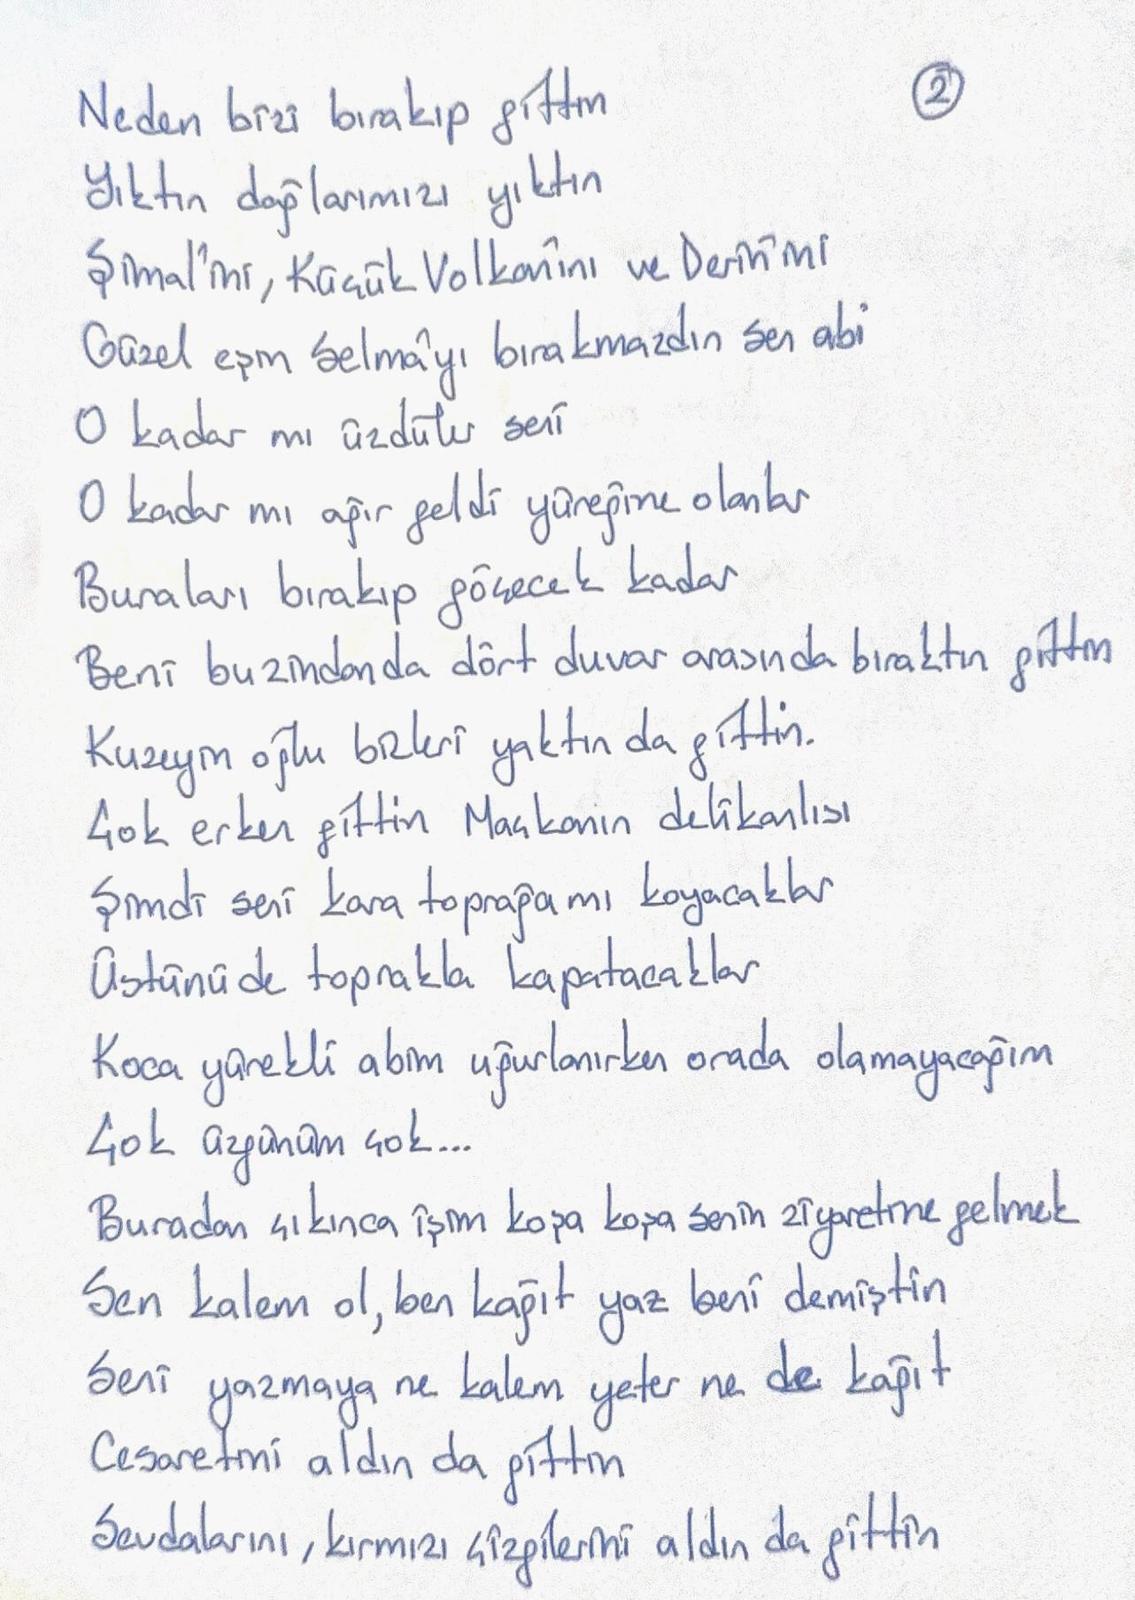 ②
Neden bizi bırakıp gittin
Yıktın dağlarımızı yıktın
Şimal'ini, Küçük Volkan'ını ve Derin'ini
Güzel eşin Selma'yı bırakmazdın sen abi
O kadar mı üzdüler seni
O kadar mı ağır geldi yüreğine olanlar
Buraları bırakıp göçecek kadar
Beni bu zindanda dört duvar arasında bıraktın gittin
Kuzeyin oğlu bizleri yaktın da gittin.
Çok erken gittin Maçkanın delikanlısı
Şimdi seni kara toprağa mı koyacaklar
Üstünü de toprakla kapatacaklar
Koca yürekli abim uğurlanırken orada olamayacağım
Çok üzgünüm çok...
Buradan çıkınca işim koşa koşa senin ziyaretine gelmek
Sen kalem ol, ben kağıt yaz beni demiştin
Seni yazmaya ne kalem yeter ne de kağıt
Cesaretini aldın da gittin
Sevdalarını, kırmızı çizgilerini aldın da gittin